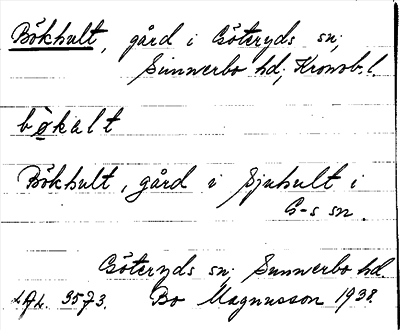 Bökhult, gård i Göteryds sn;
Sunnerbo hd; Kronob. l.
bökalt
Bökhult, gård i Sjuhult i
G-s sn.
Göteryds sn; Sunnerbo hd.
3573. Bo Magnusson 1938.